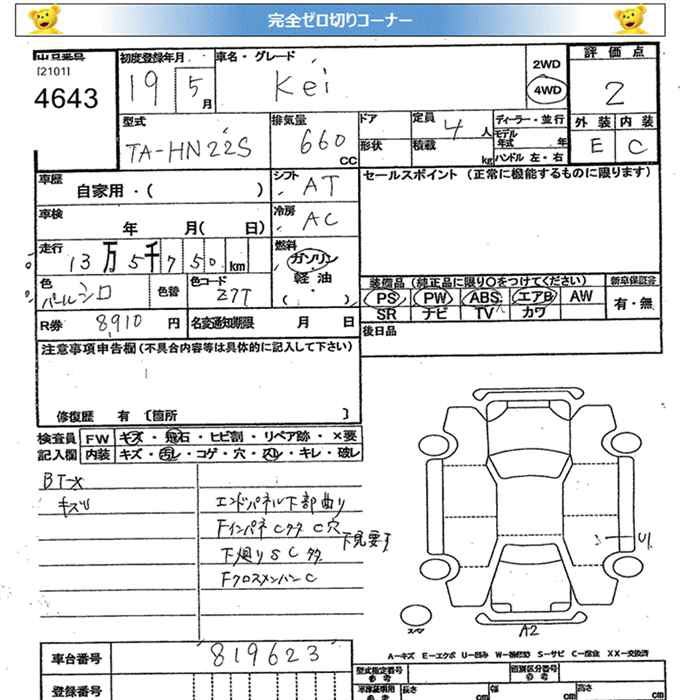 完全ゼロ切りコーナー
出品番号
[2101]
4643
初度登録年月
19 5月
車名・グレード
Kei
2WD
4WD
評価点
2
外装 内装
E C
型式
TA-HN22S
排気量
660 CC
ドア
形状
定員
4人
積載
kg
ディーラー・並行
モデル年式 年
ハンドル 左・右
車歴
自家用・( )
シフト
AT
セールスポイント (正常に機能するものに限ります)
車検
年 月( 日)
冷房
AC
走行
13万5千750km
燃料
ガソリン
軽油
( )
色
パールシロ
色替
色コード
Z7T
装備品 (純正品に限り〇をつけてください)
新車保証書
PS PW ABS エアB AW
SR ナビ TV カワ
有・無
R券 8,910 円
名変通知期限 月 日
後日品
注意事項申告欄(不具合内容等は具体的に記入して下さい)
修復歴 有 〔箇所 〕
検査員記入欄
FW キズ・飛石・ヒビ割・リペア跡・×要
内装 キズ・汚レ・コゲ・穴・スレ・キレ・破レ
BT-X
キズU
エンドパネル下部曲り
FインパネCタタC穴
下廻りSCタタ
下見要す
FクロスメンバンC
U1
スペア
A2
A-キズ E-エクボ U-凹み W-補修跡 S-サビ C-腐食 XX-交換済
車台番号
819623
登録番号
型式指定番号
参考
類別区分番号
参考
車庫証明用
参考
長さ
cm
幅
cm
高さ
cm